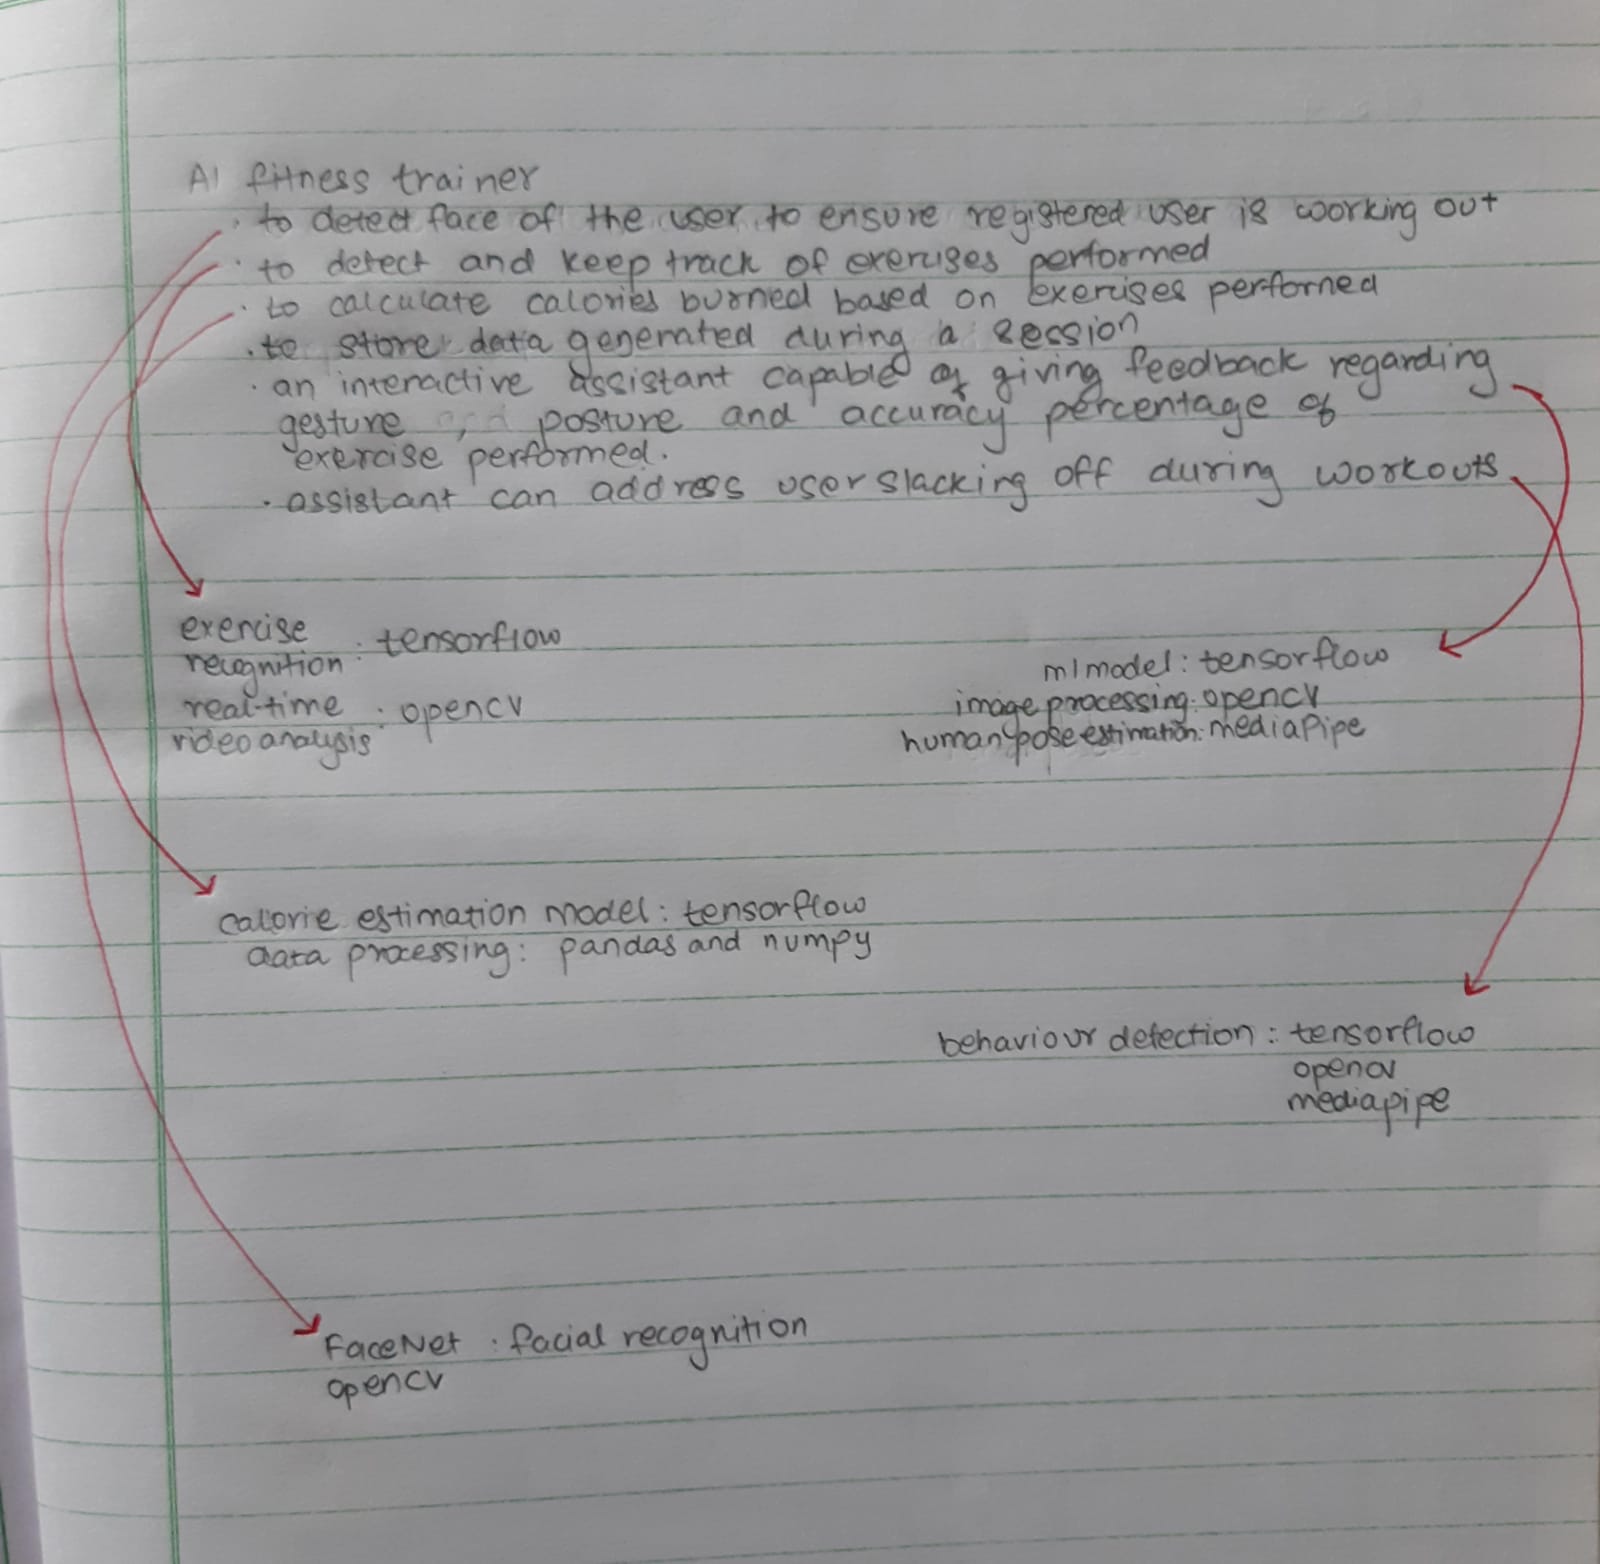 AI fitness trainer
· to detect face of the user to ensure registered user is working out
· to detect and keep track of exercises performed
· to calculate calories burned based on exercises performed
· to store data generated during a session
· an interactive assistant capable of giving feedback regarding
gesture , posture and accuracy percentage of
exercise performed.
· assistant can address user slacking off during workouts
exercise
recognition : tensorflow
real-time
video analysis : opencv
ml model : tensorflow
image processing : opencv
human pose estimation : mediaPipe
calorie estimation model : tensorflow
data processing : pandas and numpy
behaviour detection : tensorflow
opencv
mediapipe
FaceNet : facial recognition
opencv